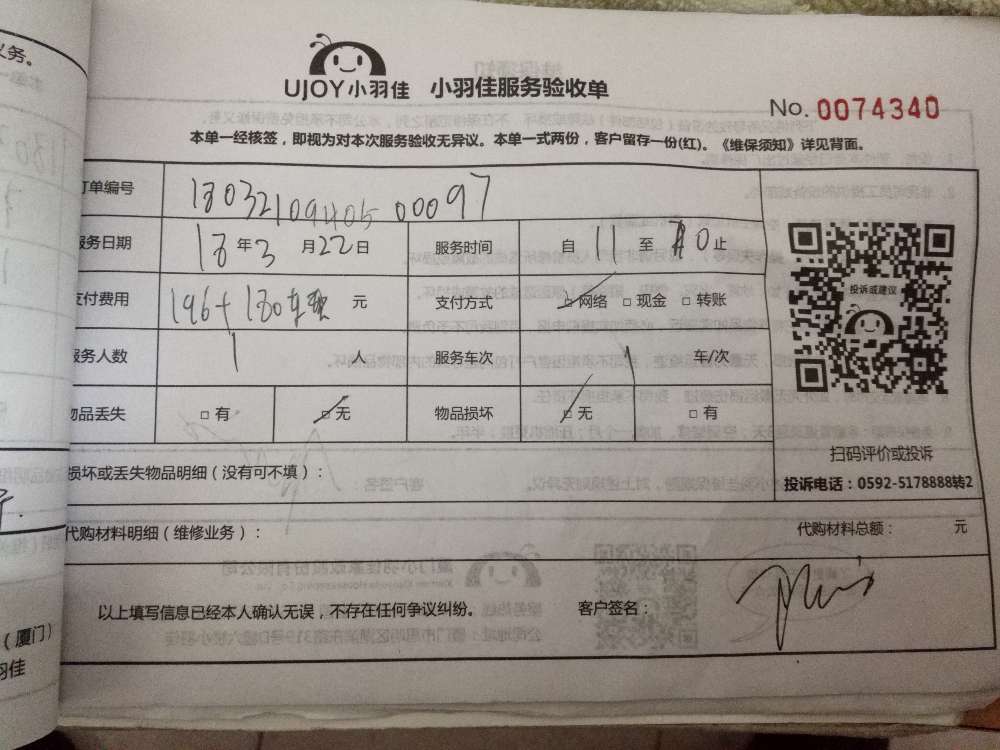 义务。
UJOY小羽佳 小羽佳服务验收单
No. 0074340
本单一经核签，即视为对本次服务验收无异议。本单一式两份，客户留存一份(红)。《维保须知》详见背面。
订单编号 18032109405 00097
服务日期 18年3月22日 服务时间 自11至 止
支付费用 196+180 元 支付方式 □网络 □现金 □转账
服务人数 1 人 服务车次 1 车/次
物品丢失 □有 □无 物品损坏 □无 □有
投诉或建议
扫码评价或投诉
投诉电话：0592-5178888转2
损坏或丢失物品明细（没有可不填）：
代购材料明细（维修业务）： 代购材料总额： 元
以上填写信息已经本人确认无误，不存在任何争议纠纷。 客户签名：
（厦门）
羽佳